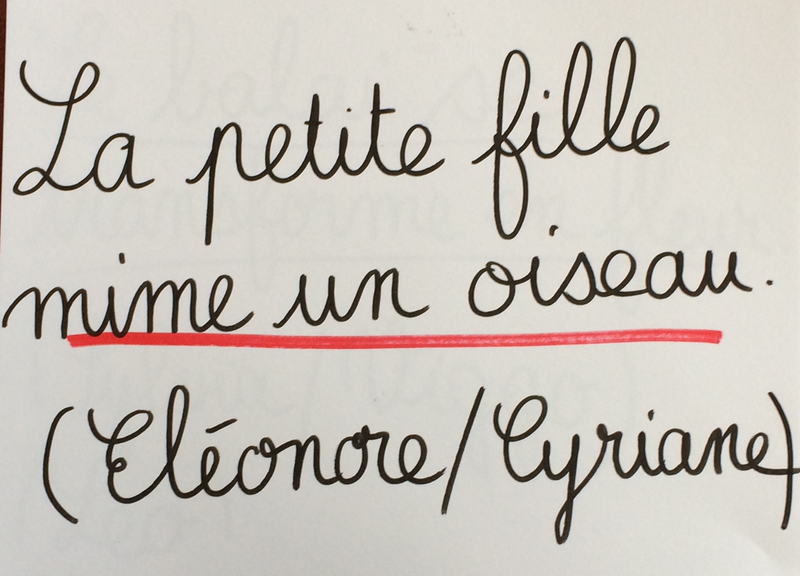 La petite fille
mime un oiseau.
(Eléonore/Cyriane)